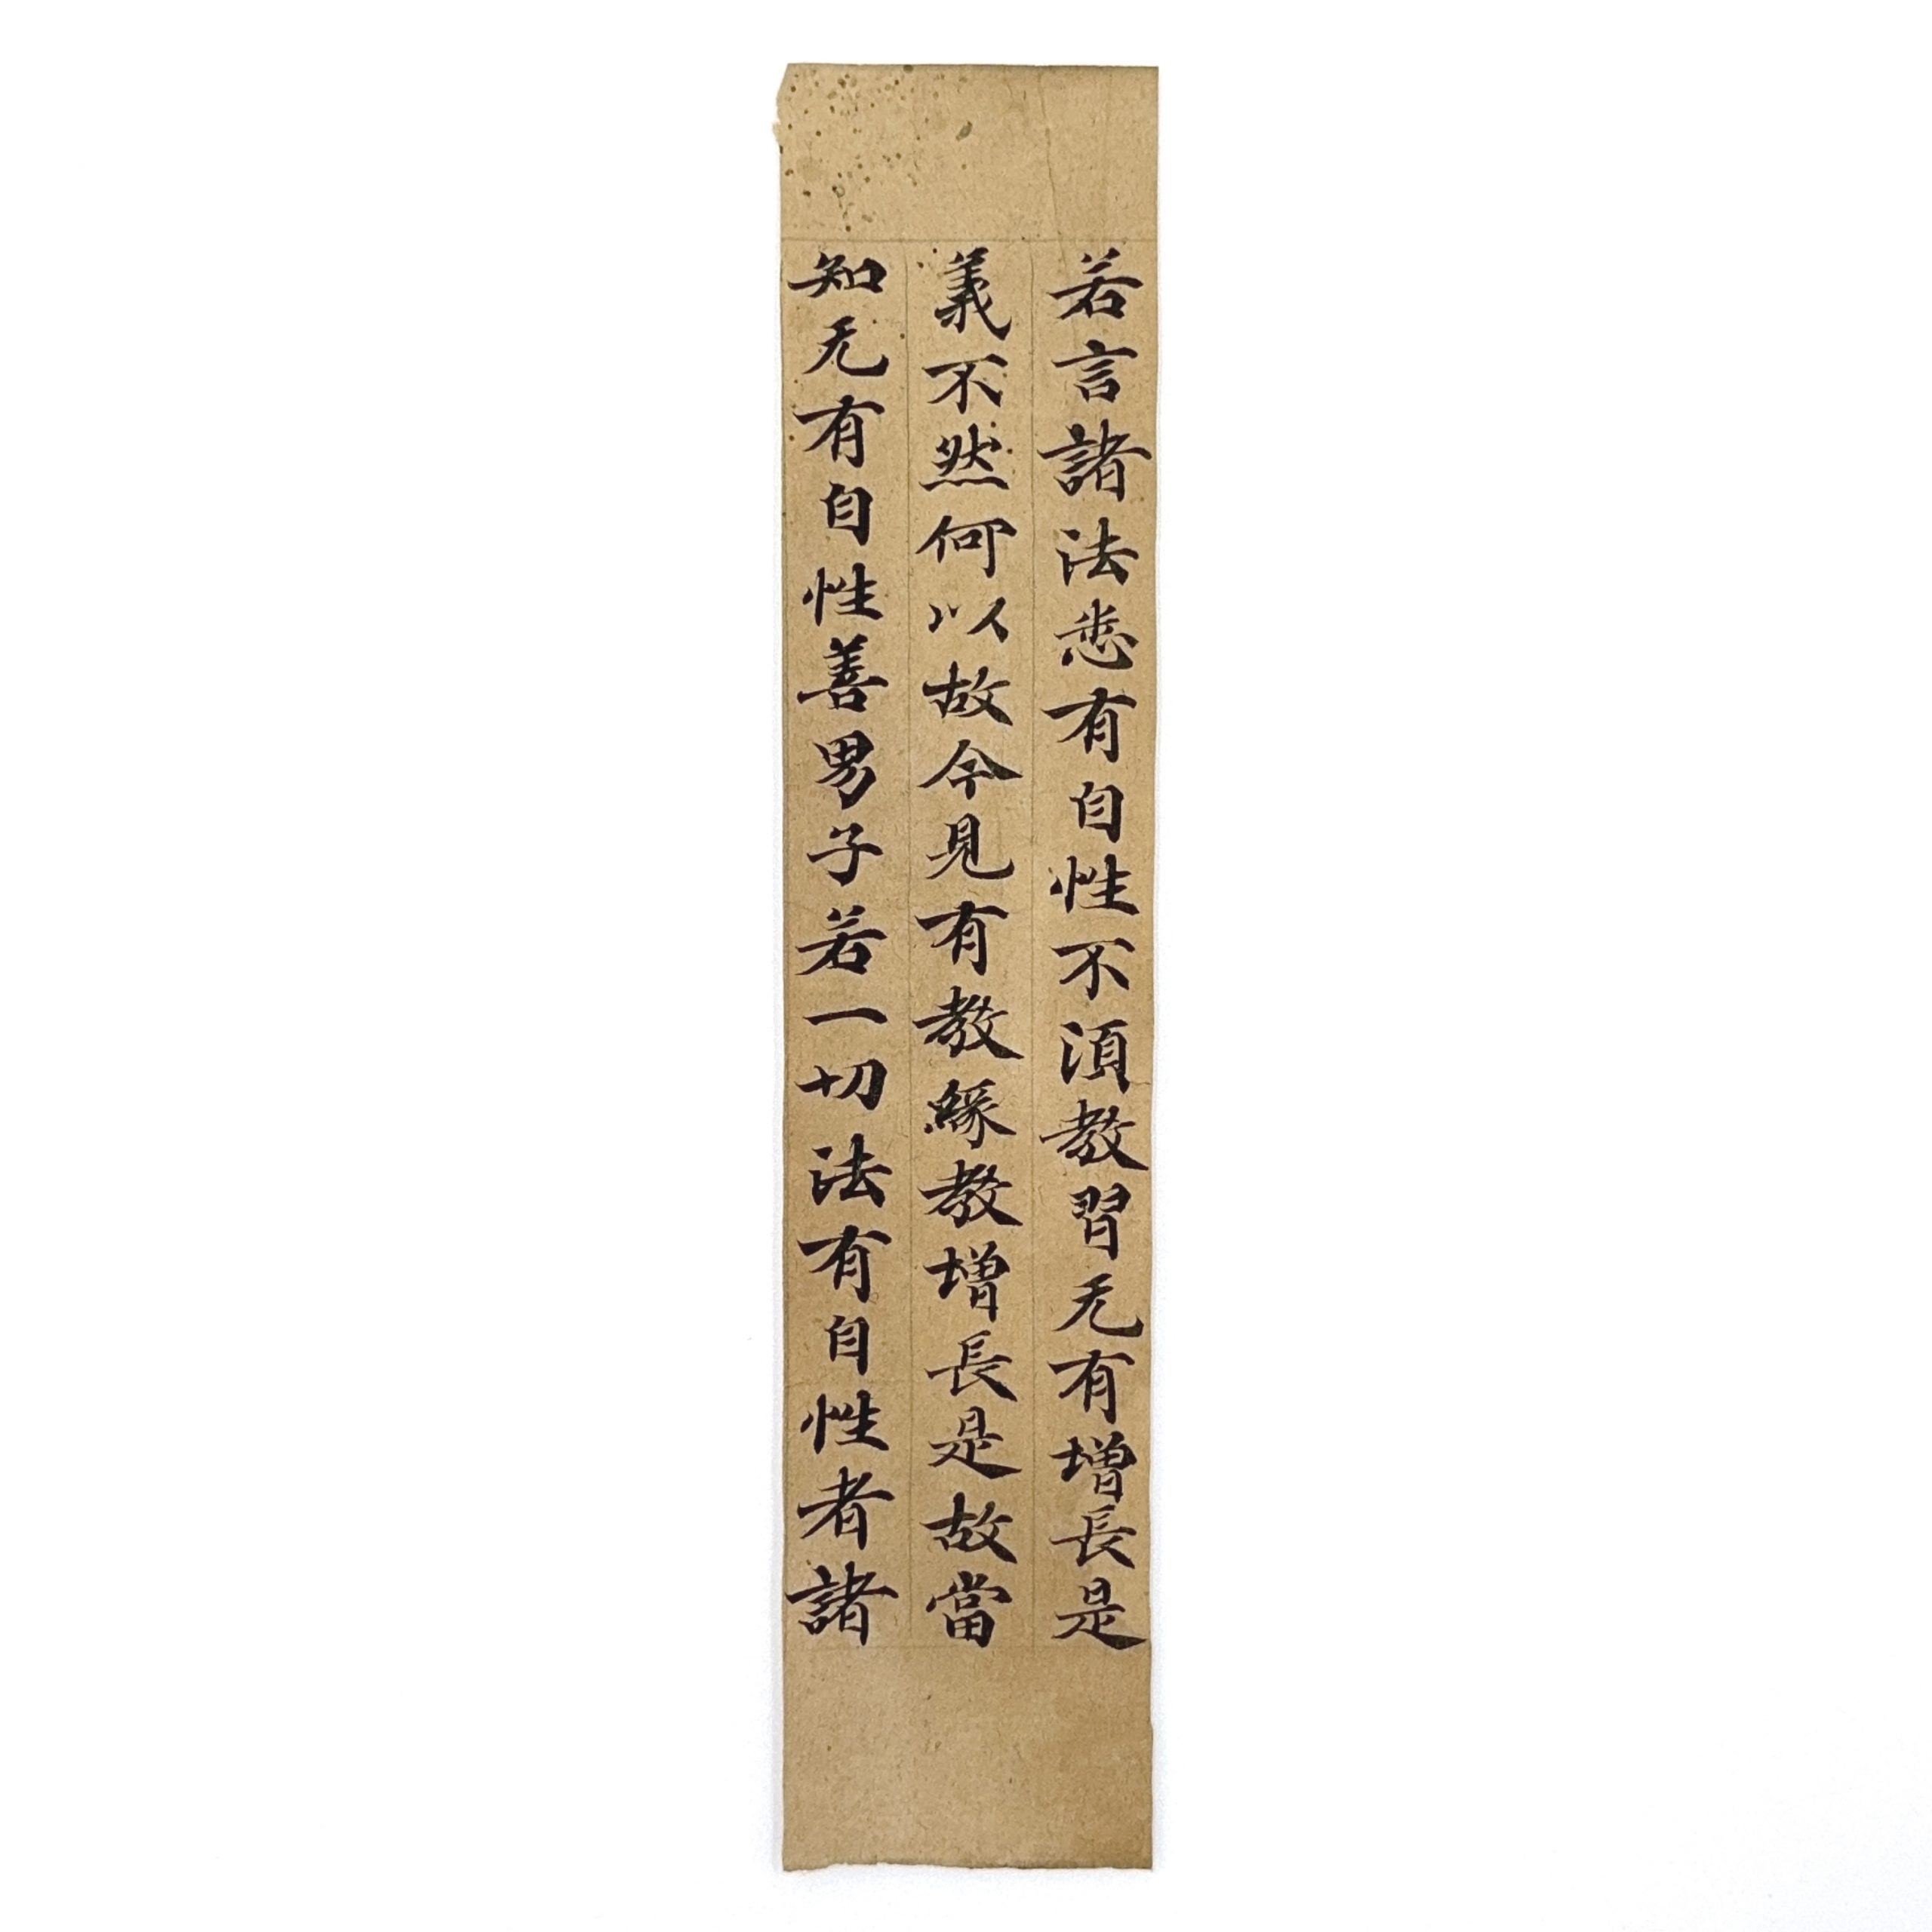 若言諸法悉有自性不須教習无有增長是
義不然何以故今見有教緣教增長是故當
知无有自性善男子若一切法有自性者諸